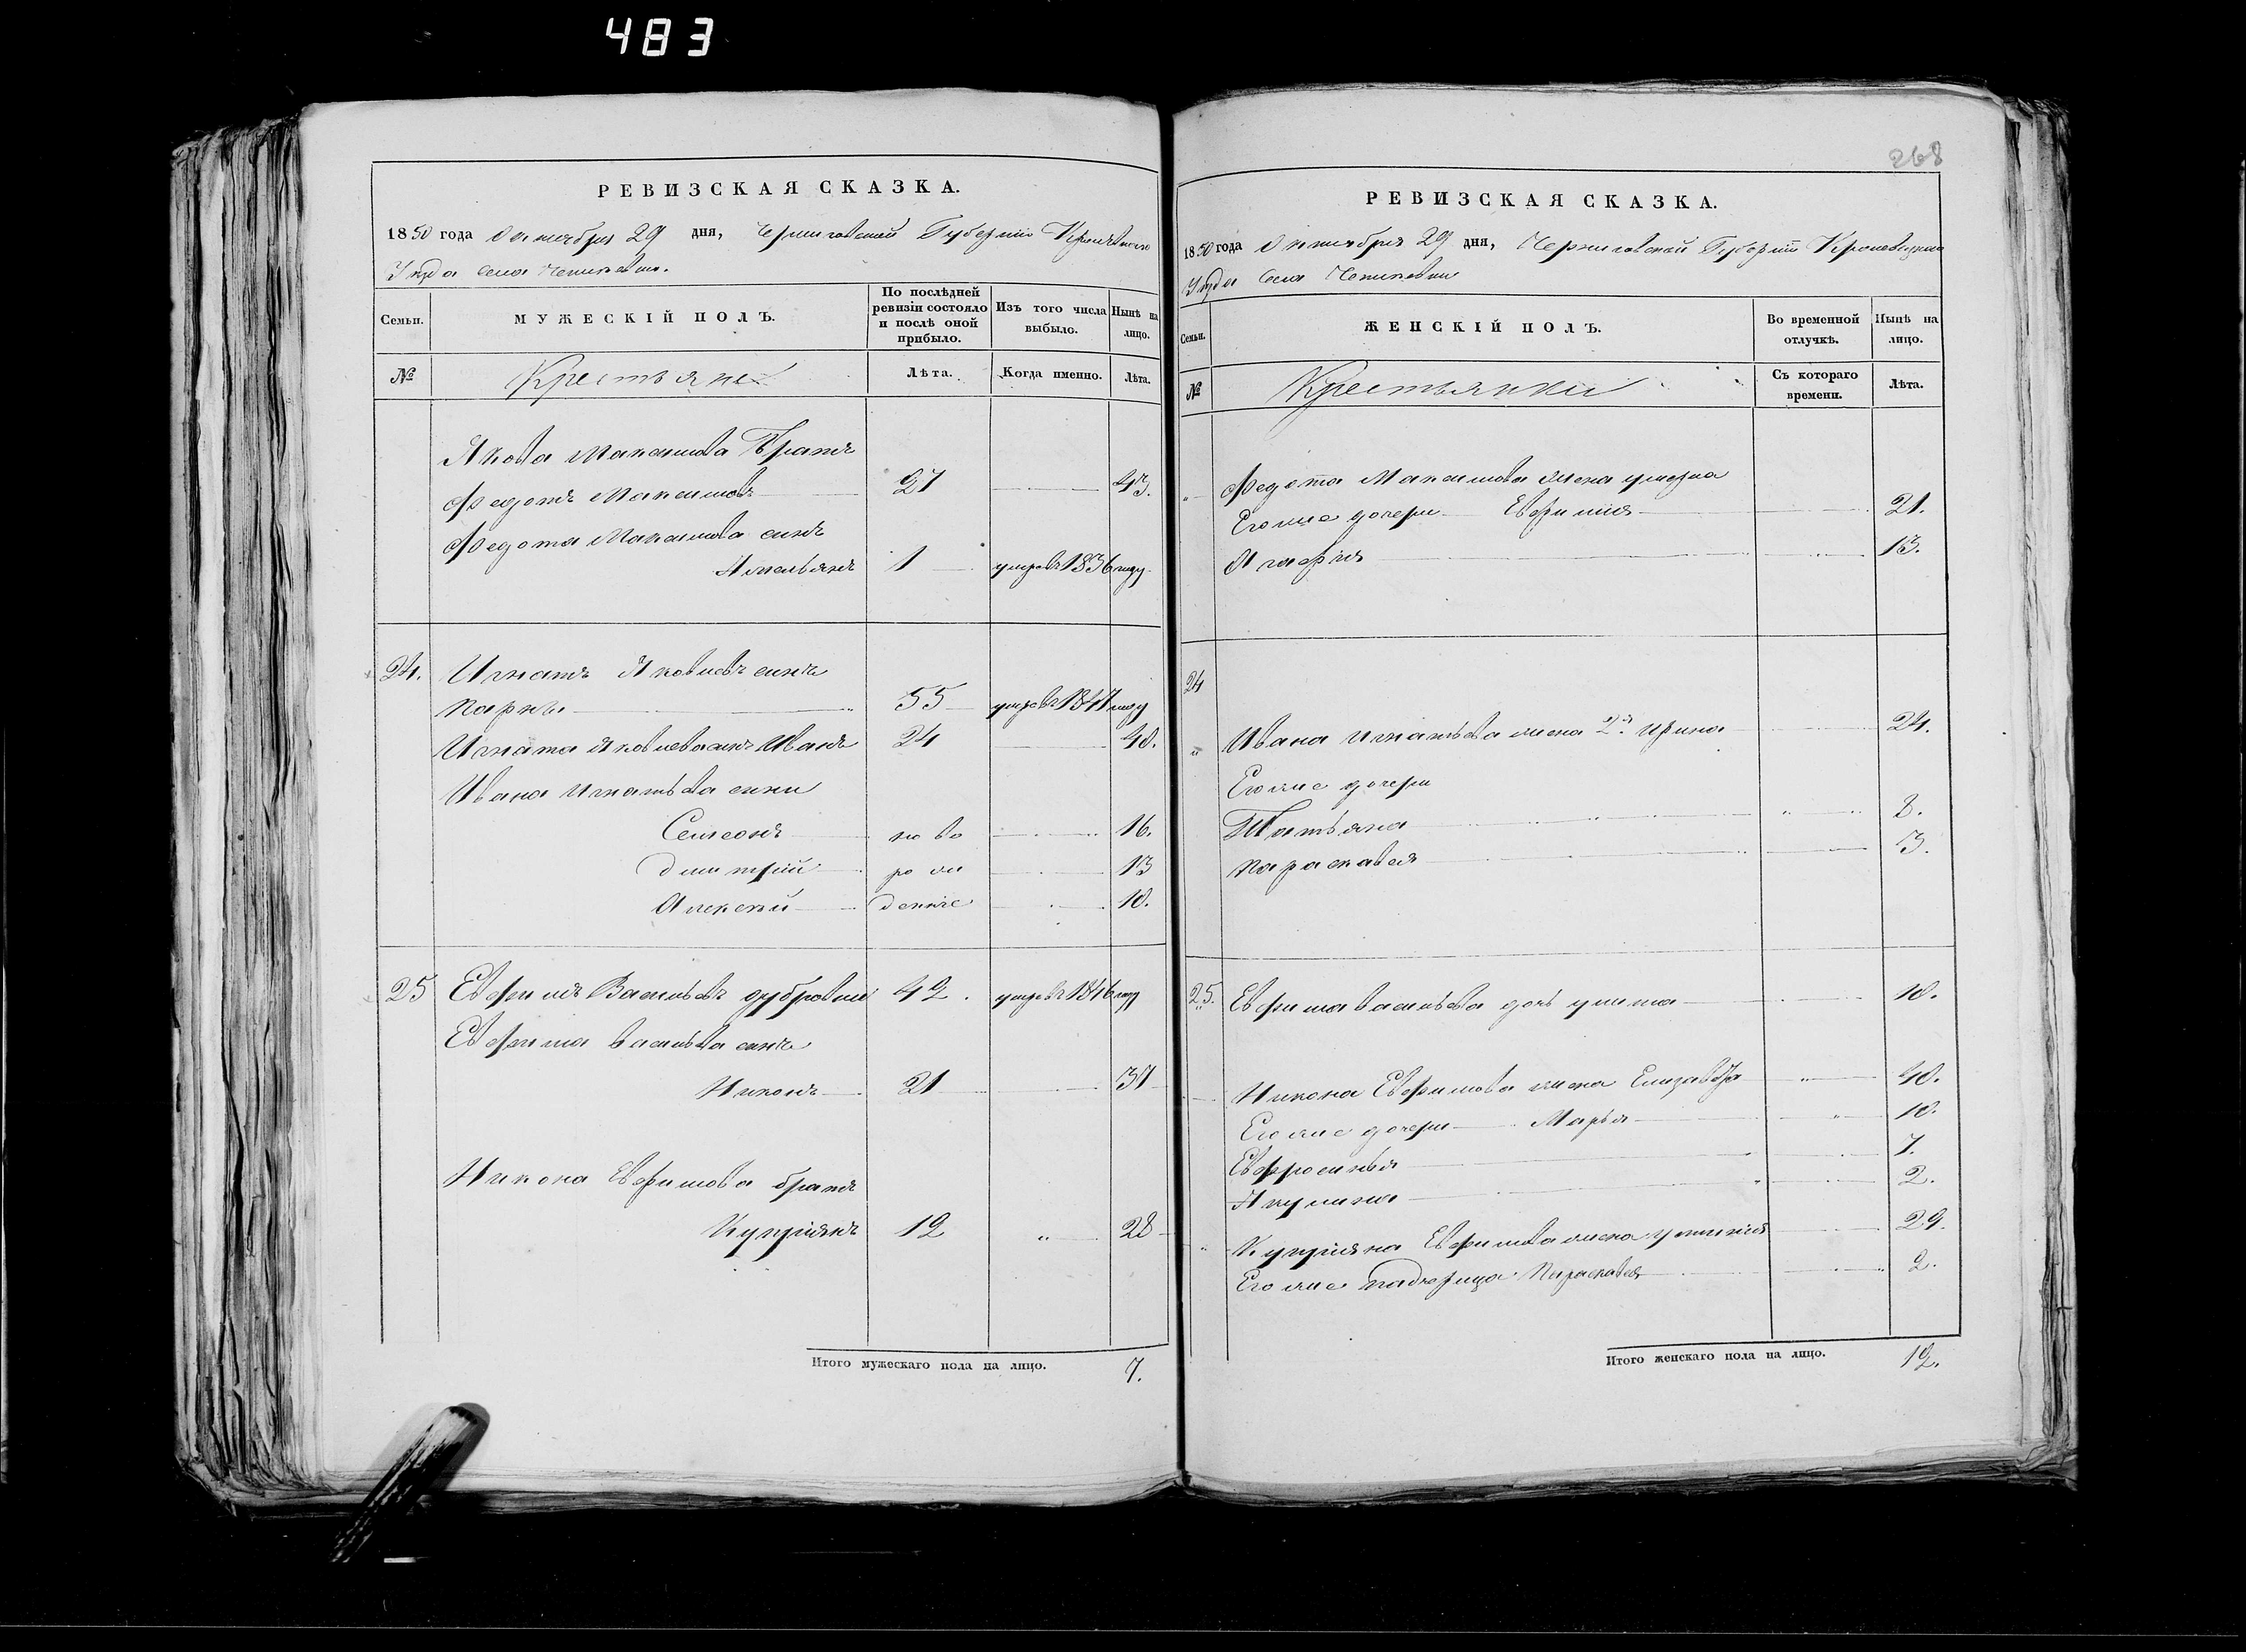 483
268
РЕВИЗСКАЯ СКАЗКА.
1850 года Октября 29 дня, Черниговской Губернии Кролевецкого
Уезда Села
Семьи.
МУЖЕСКІЙ ПОЛЪ.
По послѣдней ревизіи состояло и послѣ оной прибыло.
Изъ того числа выбыло.
Нынѣ на лицо.
№
Крестьяне
Лѣта.
Когда именно.
Лѣта.
Якова Максимова Братъ
Федотъ Максимовъ 27 43.
Федота Максимова сынъ
Амельянъ 1 умре въ 1836 году
24. Игнатъ Яковлевъ сынъ
55 умре въ 1847 году
Игната Яковлева сынъ Иванъ 24 40.
Ивана Игнатьева сыны
Семеонъ но во 16.
Дмитрій ро ж 13
Алексей денние 10.
25 Евфимъ Васильевъ 42. умре въ 1846 году
Евфима Васильева сынъ
Никонъ 21 37
Никона Евфимова братъ
Купріянъ 12 „ 28
Итого мужескаго пола на лицо. 7.
РЕВИЗСКАЯ СКАЗКА.
1850 года Октября 29 дня, Черниговской Губерніи Кролевецкого
Уезда Села
Семьи.
ЖЕНСКІЙ ПОЛЪ.
Во временной отлучкѣ.
Нынѣ на лицо.
№
Крестьянки
Съ котораго времени.
Лѣта.
„ Федота Максимова жена
Его же дочери Евфимия 21.
Агафія 13.
24
„ Ивана Игнатьева жена 2я Ирина 24.
Его же дочери
Татьяна 8.
Параскавея 3.
25. Евфима Васильева дочь 10.
Никона Евфимова жена Елизавета 40.
Его же дочери Марья 10.
Евфросинья 7.
Акулина 2.
„ Купріяна Евфимова жена 29.
Его же падчерица Параскавея 2.
Итого женскаго пола на лицо. 12.